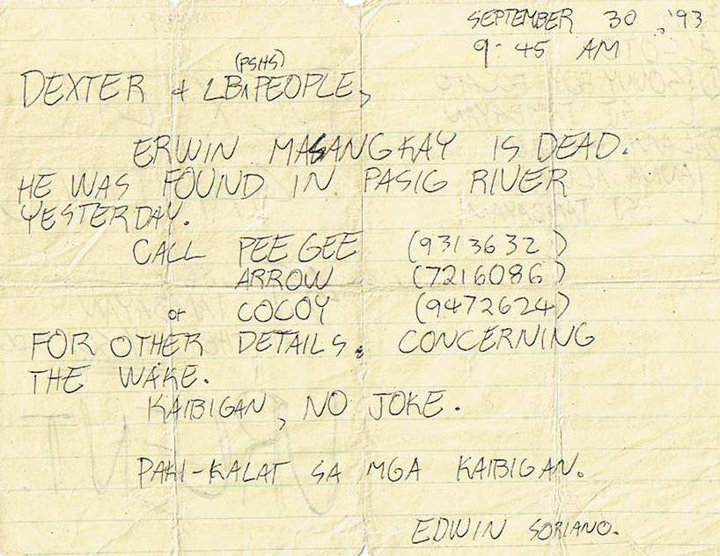 SEPTEMBER 30, '93
9:45 AM
(PSHS)
DEXTER & LB PEOPLE,
ERWIN MASANGKAY IS DEAD.
HE WAS FOUND IN PASIG RIVER
YESTERDAY.
CALL PEE GEE (9313632)
ARROW (7216086)
or COCOY (9472624)
FOR OTHER DETAILS. CONCERNING
THE WAKE.
KAIBIGAN, NO JOKE.
PAKI-KALAT SA MGA KAIBIGAN.
EDWIN SORIANO.